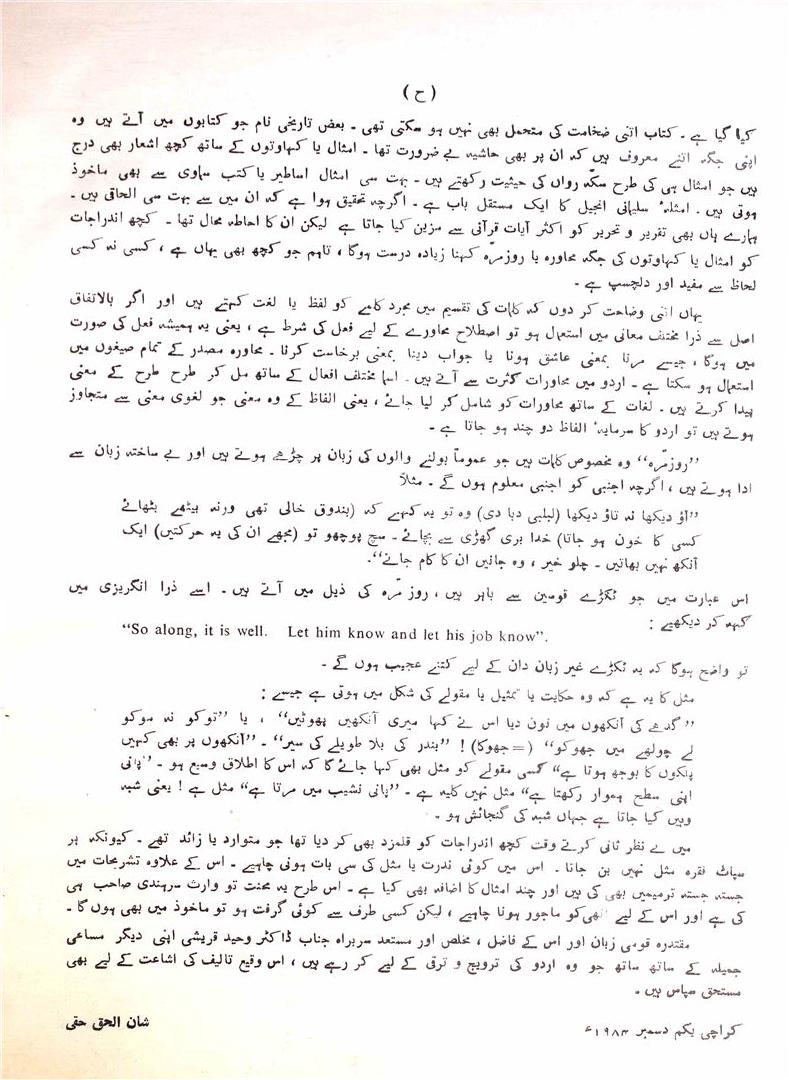 (ح)
کیا گیا ہے ۔ کتاب اتنی ضخامت کی متحمل بھی نہیں ہو سکتی تھی ۔ بعض تاریخی نام جو کتابوں میں آتے ہیں وہ
اپنی جگہ اتنے معروف ہیں کہ ان پر بھی حاشیہ بے ضرورت تھا ۔ امثال یا کہاوتوں کے ساتھ کچھ اشعار بھی درج
ہیں جو امثال ہی کی طرح سکّہ رواں کی حیثیت رکھتے ہیں ۔ بہت سی امثال اساطیر یا کتب سماوی سے بھی ماخوذ
ہوتی ہیں ۔ امثلہٴ سلیمانی انجیل کا ایک مستقل باب ہے ۔ اگرچہ تحقیق ہوا ہے کہ ان میں سے بہت سی الحاقی ہیں ۔
ہمارے ہاں بھی تقریر و تحریر کو اکثر آیات قرآنی سے مزین کیا جاتا ہے لیکن ان کا احاطہ محال تھا ۔ کچھ اندراجات
کو امثال یا کہاوتوں کی جگہ محاورہ یا روزمرّہ کہنا زیادہ درست ہوگا ، تاہم جو کچھ بھی یہاں ہے ، کسی نہ کسی
لحاظ سے مفید اور دلچسپ ہے ۔
یہاں اتنی وضاحت کر دوں کہ کلمات کی تقسیم میں مجرد کلمے کو لفظ یا لغت کہتے ہیں اور اگر بالاتفاق
اصل سے ذرا مختلف معانی میں استعمال ہو تو اصطلاح محاورے کے لیے فعل کی شرط ہے ، یعنی یہ ہمیشہ فعل کی صورت
میں ہوگا ، جیسے مرنا بمعنی عاشق ہونا یا جواب دینا بمعنی برخاست کرنا ۔ محاورہ مصدر کے تمام صیغوں میں
استعمال ہو سکتا ہے ۔ اردو میں محاورات کثرت سے آتے ہیں ۔ اسما مختلف افعال کے ساتھ مل کر طرح طرح کے معنی
پیدا کرتے ہیں ۔ لغات کے ساتھ محاورات کو شامل کر لیا جائے ، یعنی الفاظ کے وہ معنی جو لغوی معنی سے متجاوز
ہوتے ہیں تو اردو کا سرمایہٴ الفاظ دو چند ہو جاتا ہے ۔
”روزمرّہ“ وہ مخصوص کلمات ہیں جو عموماً بولنے والوں کی زبان پر چڑھے ہوتے ہیں اور بے ساختہ زبان سے
ادا ہوتے ہیں ، اگرچہ اجنبی کو اجنبی معلوم ہوں گے ۔ مثلاً
”آؤ دیکھا نہ تاؤ دیکھا (لبلبی دبا دی) وہ تو یہ کہیے کہ (بندوق خالی تھی ورنہ بیٹھے بٹھائے
کسی کا خون ہو جاتا) خدا بری گھڑی سے بچائے ۔ سچ پوچھو تو (مجھے ان کی یہ حرکتیں) ایک
آنکھ نہیں بھاتیں ۔ چلو خیر ، وہ جانیں ان کا کام جانے“.
اس عبارت میں جو ٹکڑے قوسین سے باہر ہیں ، روز مرّہ کی ذیل میں آتے ہیں ۔ اسے ذرا انگریزی میں
کہہ کر دیکھیے :
“So along, it is well. Let him know and let his job know”.
تو واضح ہوگا کہ یہ ٹکڑے غیر زبان دان کے لیے کتنے عجیب ہوں گے ۔
مثل کا یہ ہے کہ وہ حکایت یا تمثیل یا مقولے کی شکل میں ہوتی ہے جیسے :
”گدھے کی آنکھوں میں نون دیا اس نے کہا میری آنکھیں پھوٹیں“ ، یا ”توکو نہ موکو
لے چولھے میں جھوکو“ (= جھوکا) ! ”بندر کی بلا طویلے کی سیر“ ۔ ”آنکھوں پر بھی کہیں
پلکوں کا بوجھ ہوتا ہے“ کسی مقولے کو مثل بھی کہا جائے گا کہ اس کا اطلاق وسیع ہو ۔ ”پانی
اپنی سطح ہموار رکھتا ہے“ مثل نہیں کلیہ ہے ۔ ”پانی نشیب میں مرتا ہے“ مثل ہے ! یعنی شبہ
وہیں کیا جاتا ہے جہاں شبہ کی گنجائش ہو ۔
میں نے نظر ثانی کرتے وقت کچھ اندراجات کو قلمزد بھی کر دیا تھا جو متوارد یا زائد تھے ۔ کیونکہ ہر
سپاٹ فقرہ مثل نہیں بن جاتا ۔ اس میں کوئی ندرت یا مثل کی سی بات ہونی چاہیے ۔ اس کے علاوہ تشریحات میں
جستہ جستہ ترمیمیں بھی کی ہیں اور چند امثال کا اضافہ بھی کیا ہے ۔ اس طرح یہ محنت تو وارث سرہندی صاحب ہی
کی ہے اور اس کے لیے انھی کو ماجور ہونا چاہیے ، لیکن کسی طرف سے کوئی گرفت ہو تو ماخوذ میں بھی ہوں گا ۔
مقتدرہ قومی زبان اور اس کے فاضل ، مخلص اور مستعد سربراہ جناب ڈاکٹر وحید قریشی اپنی دیگر مساعی
جمیلہ کے ساتھ ساتھ جو وہ اردو کی ترویج و ترقی کے لیے کر رہے ہیں ، اس وقیع تالیف کی اشاعت کے لیے بھی
مستحق سپاس ہیں ۔
کراچی یکم دسمبر ۱۹۸۴ء
شان الحق حقی